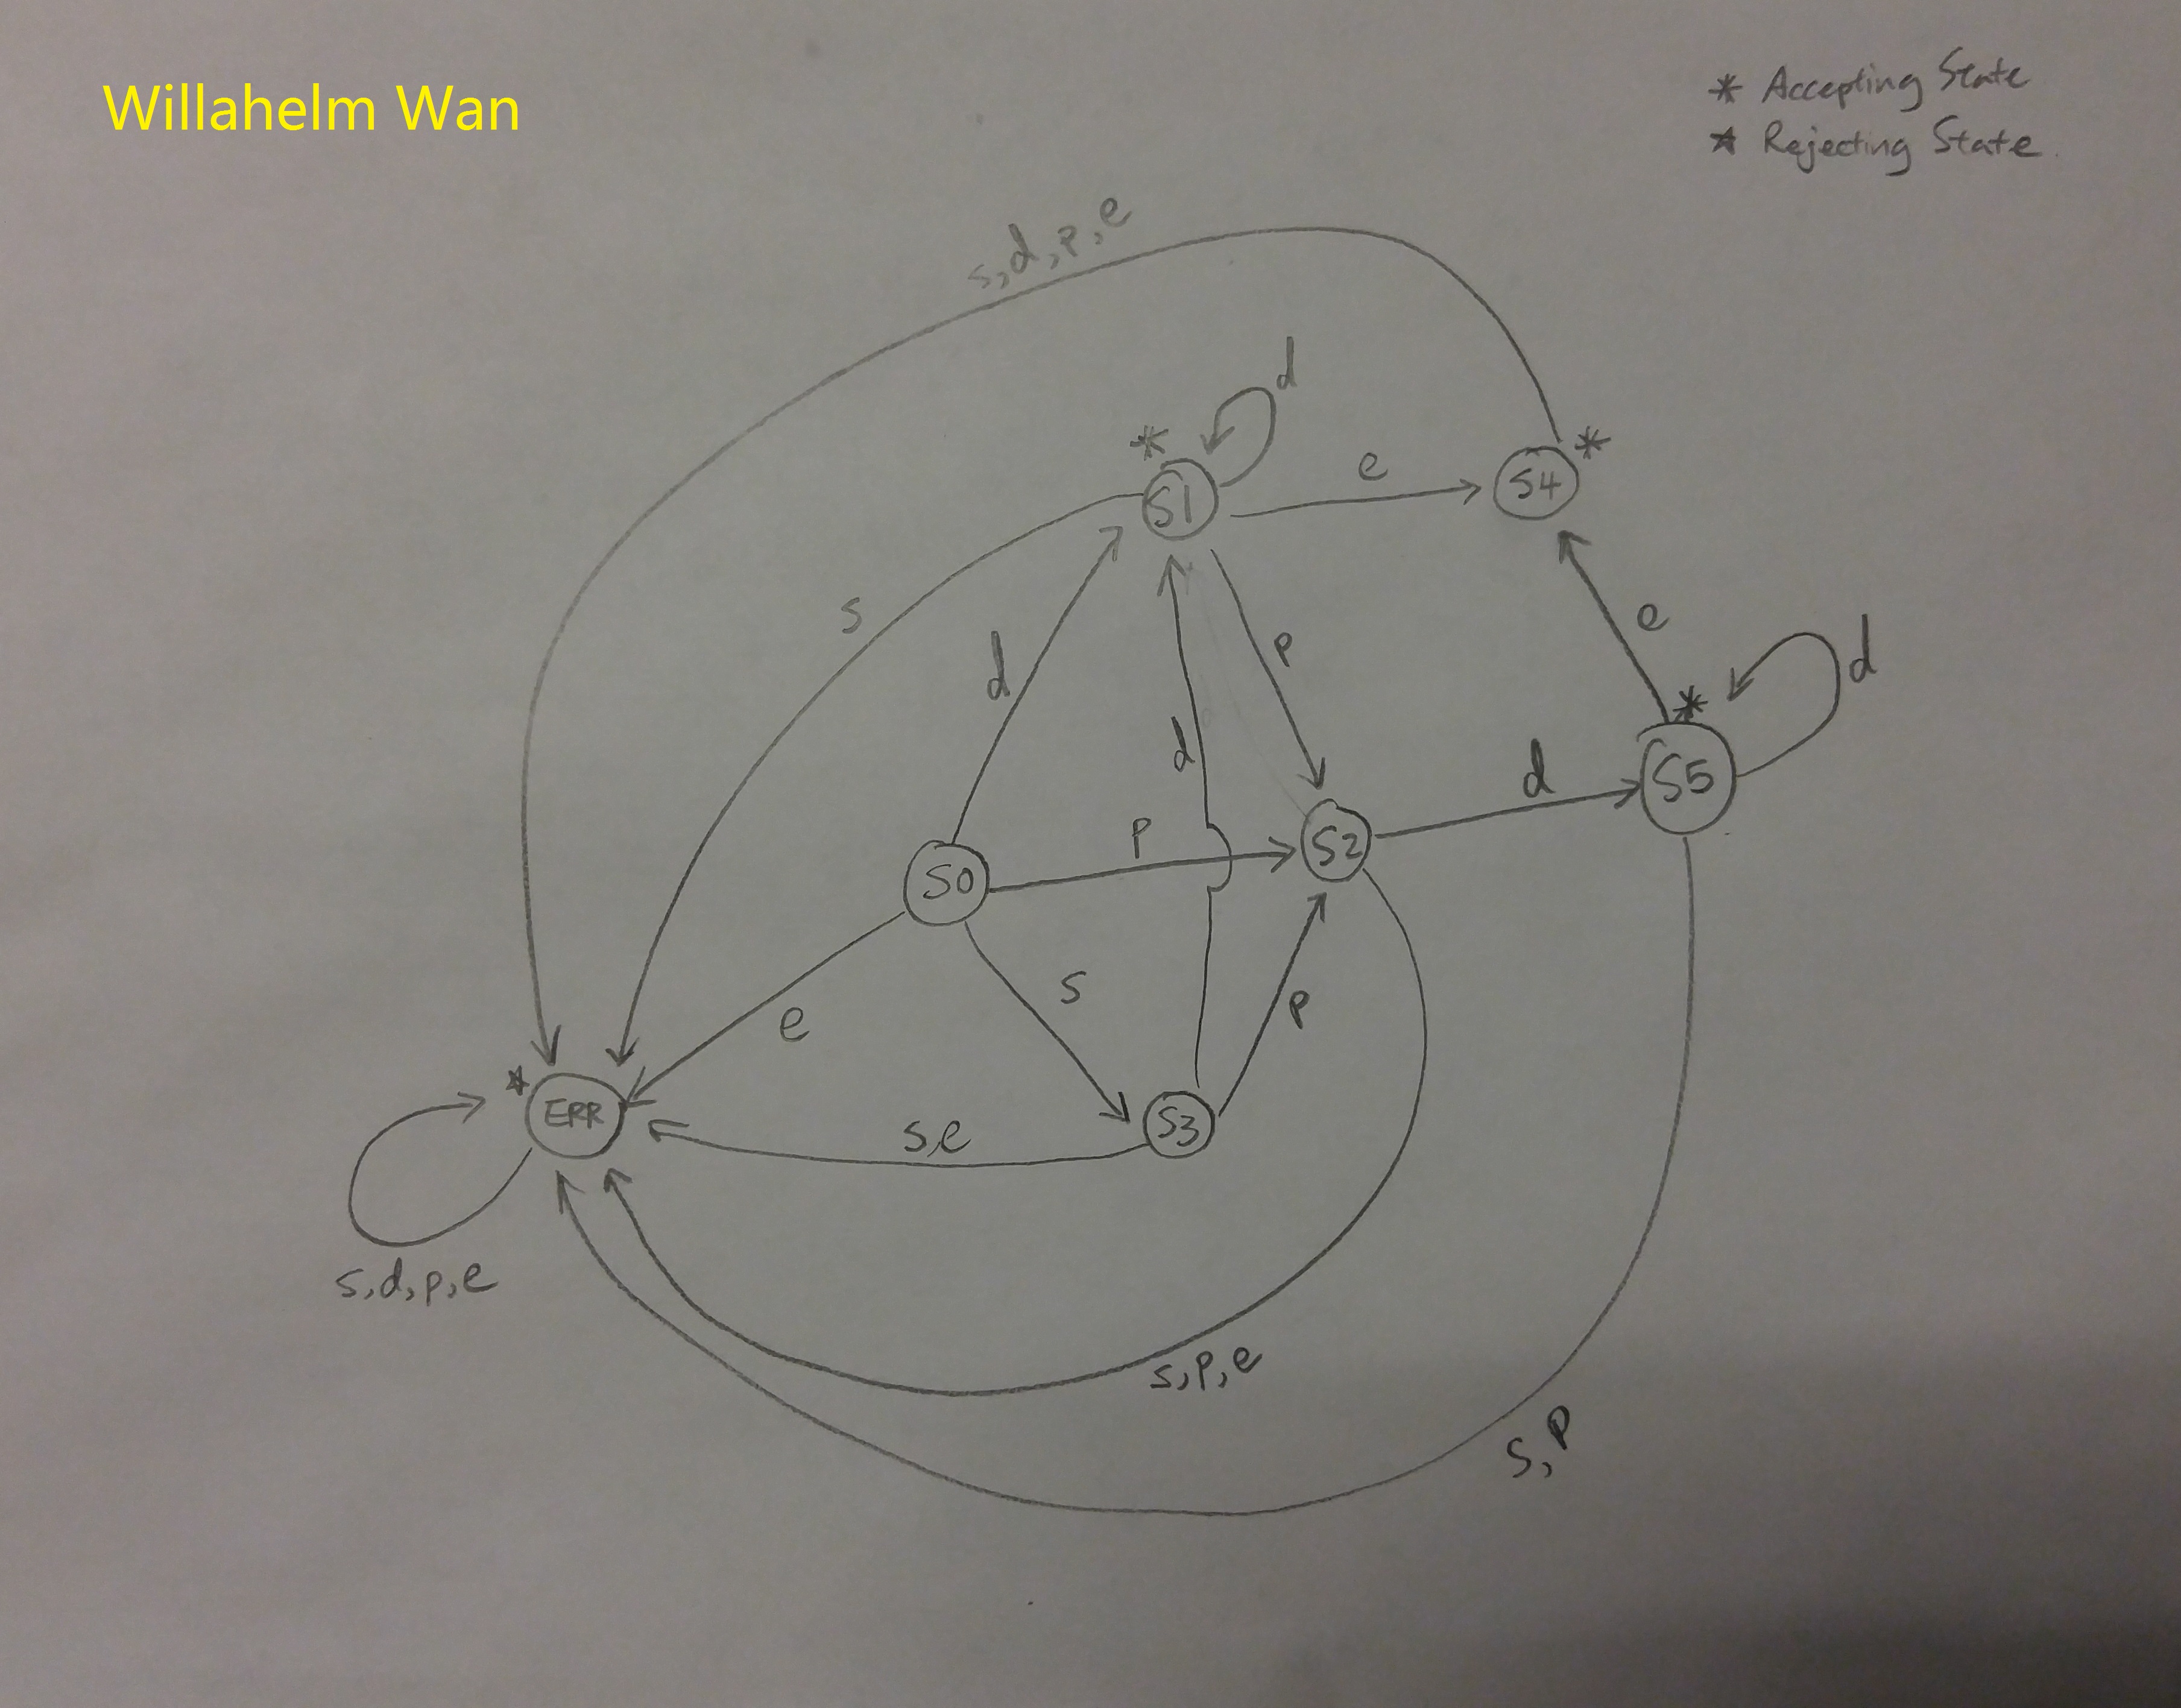 Willahelm Wan
* Accepting State
★ Rejecting State.
s,d,p,e
d
*
S1
e
S4
*
s
d
p
e
d
d
*
S5
d
p
S2
S0
s
p
e
*
ERR
s,e
S3
s,d,p,e
s,p,e
s,p